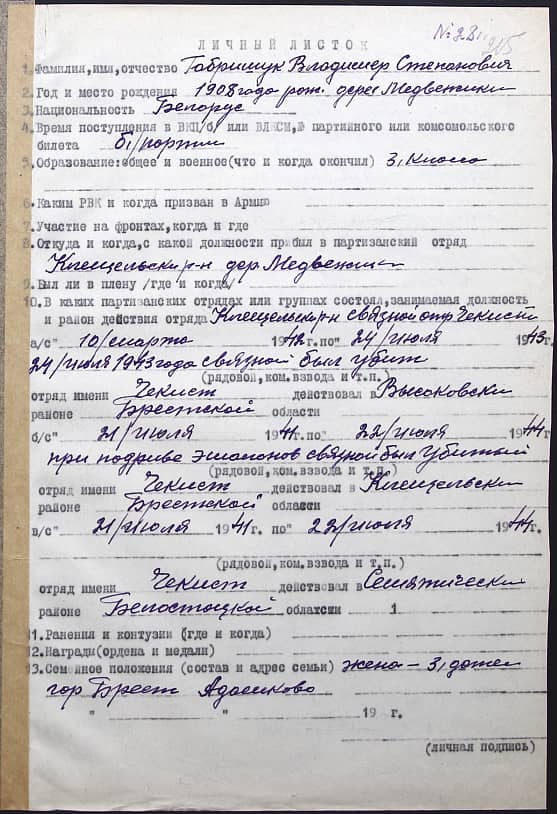 №28
215
ЛИЧНЫЙ ЛИСТОК
1.Фамилия,имя,отчество Габришук Владимер Степанович
2.Год и место рождения 1908 года рож. дере Медвежики
3.Национальность Белорус
4.Время поступления в ВКП/б/ или ВЛКСМ,№ партийного или комсомольского
билета б/партии
5.Образование:общее и военное(что и когда окончил) 3, класса
6.Каким РВК и когда призван в Армию
7.Участие на фронтах,когда и где
8.Откуда и когда,с какой должности прибыл в партизанский отряд
Клещельски р-н дер. Медвежики
9.Был ли в плену /где и когда/
10.В каких партизанских отрядах или группах состоял,занимаемая должность
и район действия отряда Клещельски р-н связной отр Чекист
а/с" 10/марта 1942г.по" 24/июля 1943г.
24/июля 1943 года связной был убит
(рядовой,ком.взвода и т.п.)
отряд имени Чекист действовал в Высоковски
районе Брестской области
б/с" 21/июля 1941г.по" 22/июля 1944г
при подриве эшалонов связной был Убитый
(рядовой,ком.взвода и т.п.)
отряд имени Чекист действовал в Клещельски
районе Брестской области
в/с" 21/июля 1941г. по" 22/июля 1944г.
(рядовой,ком.взвода и т.п.)
отряд имени Чекист действовал в Семятически
районе Белостоцкой облатсии 1
11.Ранения и контузии (где и когда)
12.Награды(ордена и медали)
13.Семейное положения (состав и адрес семьи) жена - 3, дотей
гор Брест Адамково
" " 19 г.
(личная подпись)